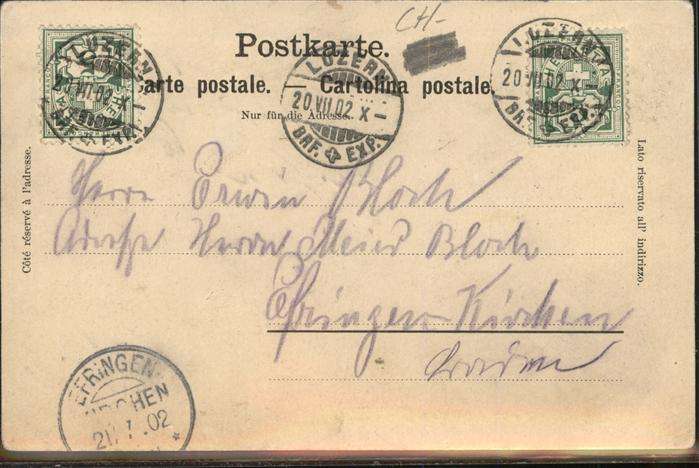 CH-
Postkarte.
Carte postale. Cartolina postale.
Nur für die Adresse.
LUZERN
20 VII 02 X
BRF. EXP.
LUZERN
20.VII.02 X
BRF. EXP.
LUZERN
20 VII 02 X
BRF. EXP.
Côté réservé à l'adresse.
Lato riservato all' indirizzo.
Herrn Erwin Bloch
Adresse Herrn Meier Bloch
Efringen-Kirchen
Baden
EFRINGEN-
KIRCHEN
02